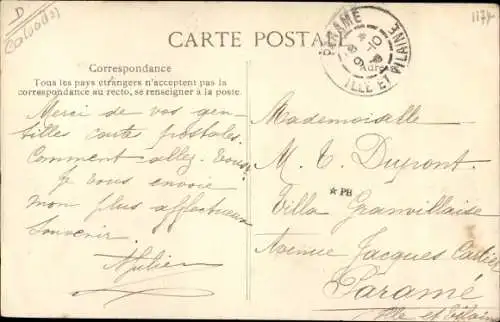 D
(Calvados)
1174
CARTE POSTALE
PARAMÉ
8
9-10
ILLE ET VILAINE
Correspondance
Tous les pays étrangers n'acceptent pas la
correspondance au recto, se renseigner à la poste.
Adre
Merci de vos gen-
tilles cartes postales.
Comment allez-vous?
Je vous envoie
mon plus affectueux
Souvenir.
Mademoiselle
M. C. Dupont
*PH
Villa Granvillaise
Avenue Jacques Cartier
Paramé
Ille et Vilaine